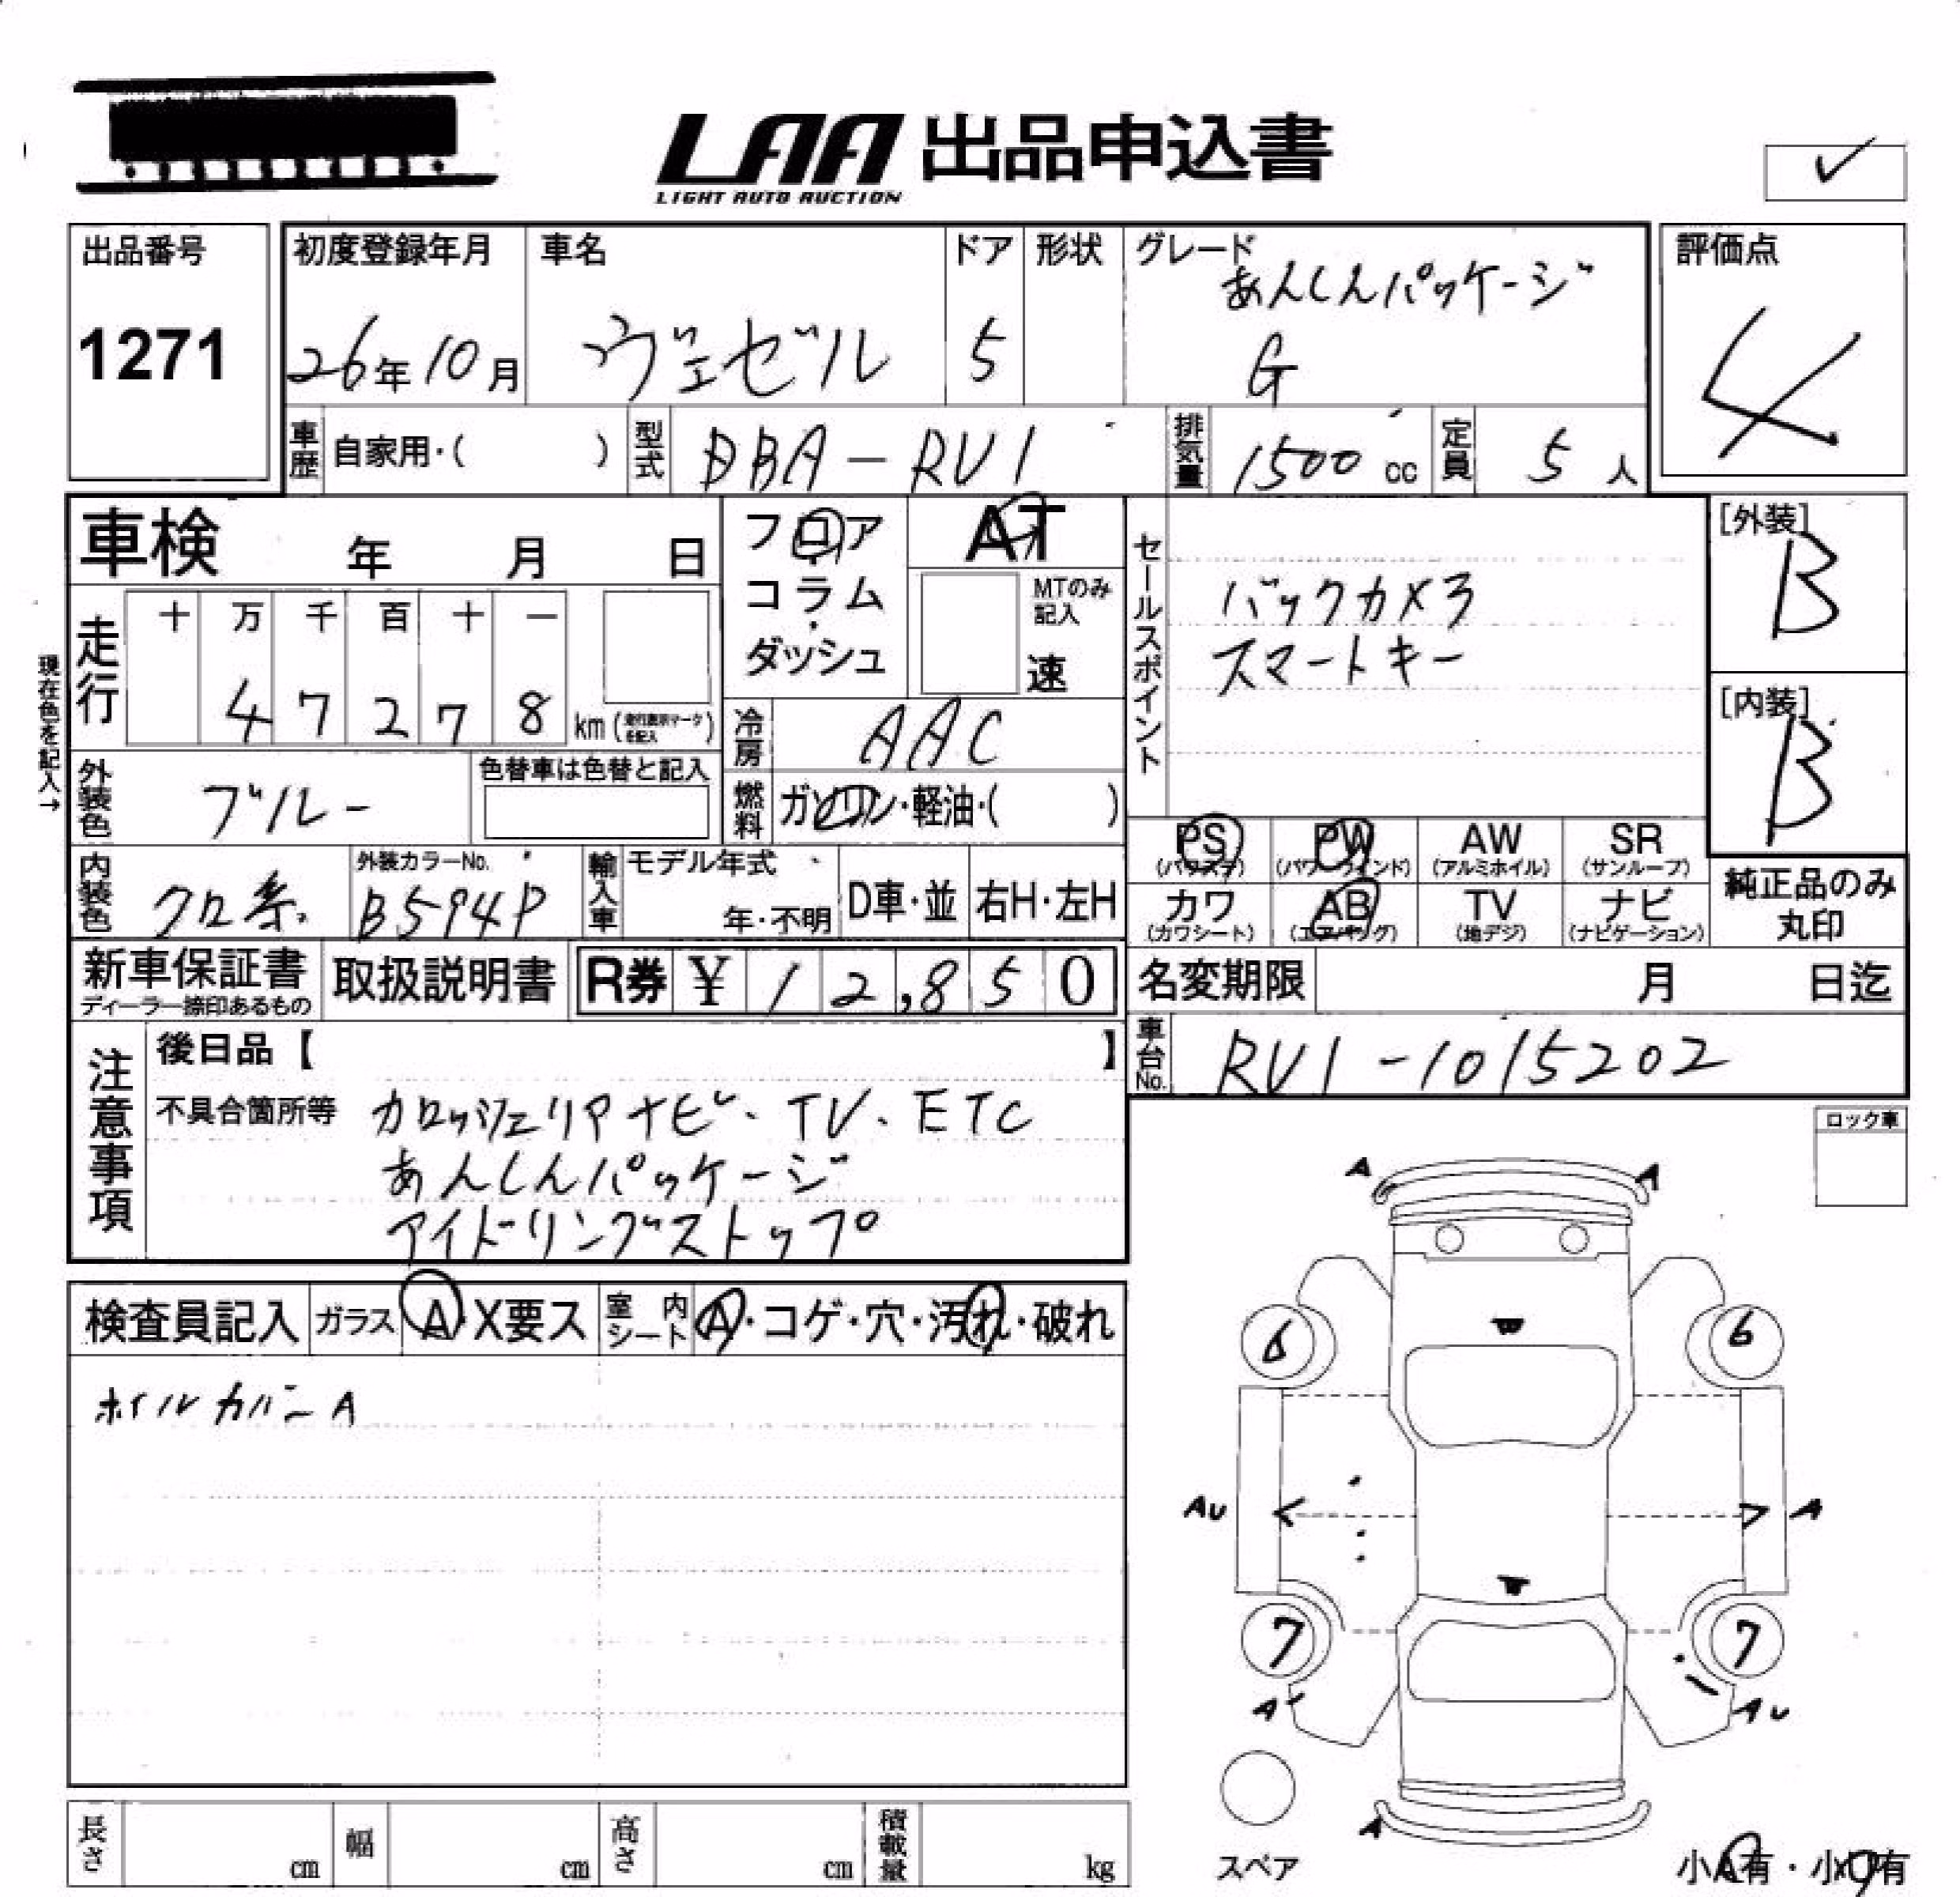 LAA 出品申込書
LIGHT AUTO AUCTION
出品番号
1271
初度登録年月
26年10月
車名
ヴェゼル
ドア
5
形状
グレード
あんしんパッケージ
G
評価点
4
車歴 自家用・( )
型式 DBA-RU1
排気量 1500 cc
定員 5 人
車検 年 月 日
フロア
コラム
ダッシュ
AT
MTのみ
記入
速
セールスポイント
バックカメラ
スマートキー
[外装]
B
[内装]
B
現在色を記入→
走行
十 万 千 百 十 一
4 7 2 7 8 km
冷房 AAC
外装色 ブルー
色替車は色替と記入
燃料 ガソリン・軽油・( )
PS PW AW SR
(パワステ) (パワーウインド) (アルミホイル) (サンルーフ)
カワ AB TV ナビ
(カワシート) (エアバッグ) (地デジ) (ナビゲーション)
純正品のみ
丸印
内装色 クロ系
外装カラーNo.
B594P
輸入車
モデル年式
年・不明
D車・並
右H・左H
新車保証書
ディーラー捺印あるもの
取扱説明書
R券 ¥ 12,850
名変期限 月 日迄
車台No. RU1-1015202
注意事項
後日品【 】
不具合箇所等 カロッツェリアナビ、TV、ETC
あんしんパッケージ
アイドリングストップ
ロック車
検査員記入 ガラス A・X要ス 室内シート A・コゲ・穴・汚れ・破れ
ホイルカバーA
A A
W
6 6
AU A
W
7 7
A AU
A
スペア
長さ cm 幅 cm 高さ cm 積載量 kg
小A有・小U有